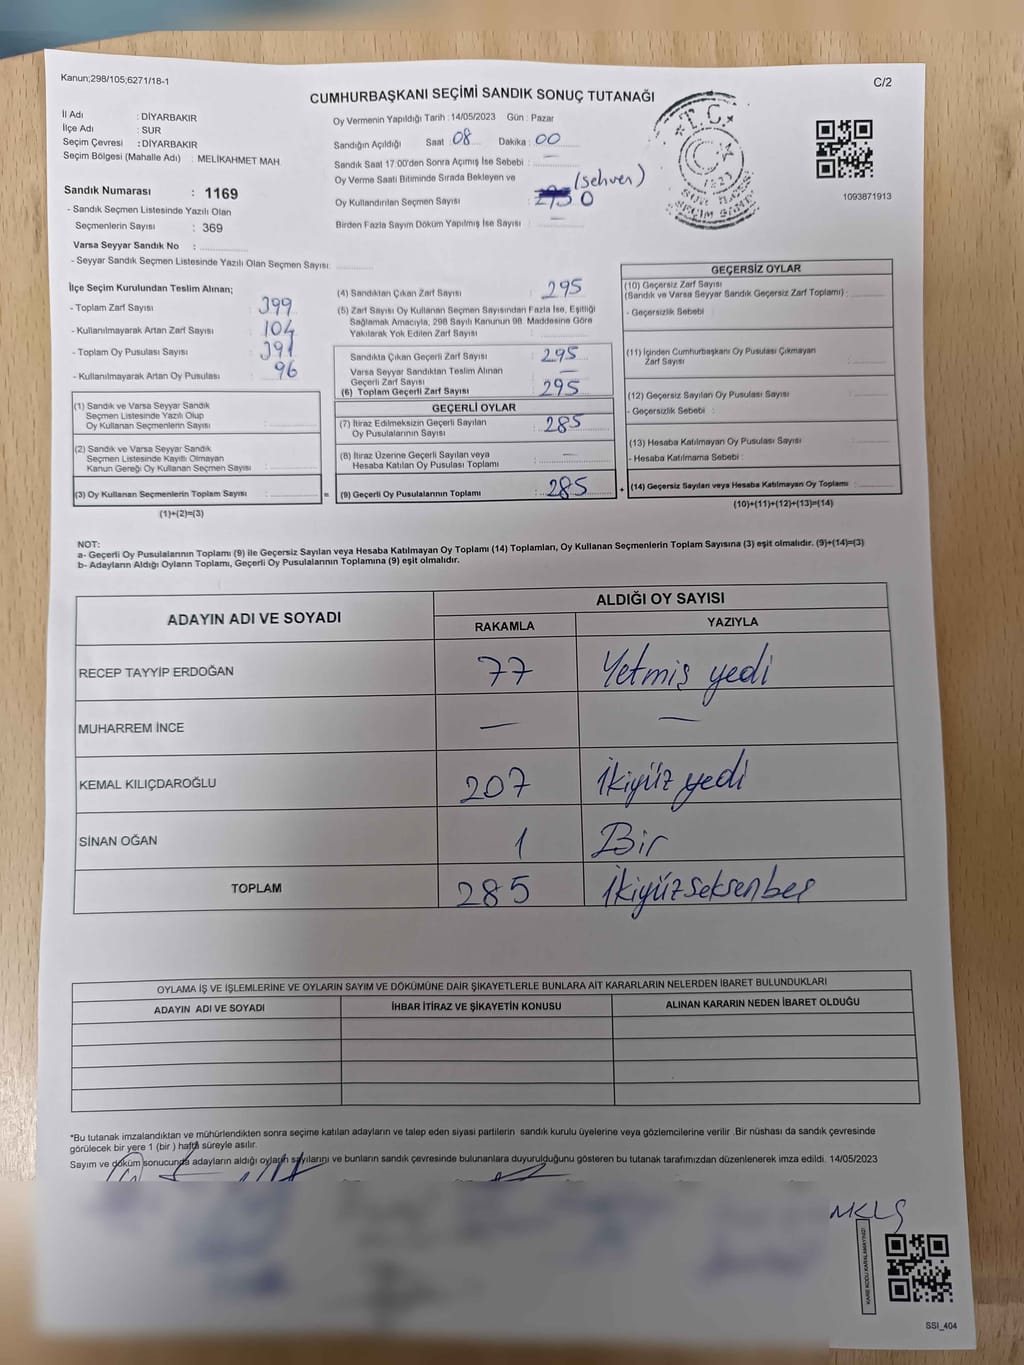 Kanun;298/105;6271/18-1
C/2
CUMHURBAŞKANI SEÇİMİ SANDIK SONUÇ TUTANAĞI
İl Adı : DİYARBAKIR
İlçe Adı : SUR
Seçim Çevresi : DİYARBAKIR
Seçim Bölgesi (Mahalle Adı) : MELİKAHMET MAH.
Sandık Numarası : 1169
- Sandık Seçmen Listesinde Yazılı Olan
Seçmenlerin Sayısı : 369
Varsa Seyyar Sandık No :
- Seyyar Sandık Seçmen Listesinde Yazılı Olan Seçmen Sayısı:
Oy Vermenin Yapıldığı Tarih : 14/05/2023 Gün : Pazar
Sandığın Açıldığı Saat 08 Dakika : 00
Sandık Saat 17:00'den Sonra Açımış İse Sebebi : —
Oy Verme Saati Bitiminde Sırada Bekleyen ve
(sehven)
Oy Kullandırılan Seçmen Sayısı : 0
Birden Fazla Sayım Döküm Yapılmış İse Sayısı : —
T.C.
1093871913
İlçe Seçim Kurulundan Teslim Alınan;
- Toplam Zarf Sayısı : 399
- Kullanılmayarak Artan Zarf Sayısı : 104
- Toplam Oy Pusulası Sayısı : 391
- Kullanılmayarak Artan Oy Pusulası : 96
(1) Sandık ve Varsa Seyyar Sandık
Seçmen Listesinde Yazılı Olup
Oy Kullanan Seçmenlerin Sayısı :
(2) Sandık ve Varsa Seyyar Sandık
Seçmen Listesinde Kayıtlı Olmayan
Kanun Gereği Oy Kullanan Seçmen Sayısı :
(3) Oy Kullanan Seçmenlerin Toplam Sayısı : =
(1)+(2)=(3)
(4) Sandıktan Çıkan Zarf Sayısı : 295
(5) Zarf Sayısı Oy Kullanan Seçmen Sayısından Fazla İse, Eşitliği
Sağlamak Amacıyla, 298 Sayılı Kanunun 98. Maddesine Göre
Yakılarak Yok Edilen Zarf Sayısı :
Sandıkta Çıkan Geçerli Zarf Sayısı : 295
Varsa Seyyar Sandıktan Teslim Alınan
Geçerli Zarf Sayısı : —
(6) Toplam Geçerli Zarf Sayısı : 295
GEÇERLİ OYLAR
(7) İtiraz Edilmeksizin Geçerli Sayılan
Oy Pusulalarının Sayısı : 285
(8) İtiraz Üzerine Geçerli Sayılan veya
Hesaba Katılan Oy Pusulası Toplamı : —
(9) Geçerli Oy Pusulalarının Toplamı : 285 +
GEÇERSİZ OYLAR
(10) Geçersiz Zarf Sayısı
(Sandık ve Varsa Seyyar Sandık Geçersiz Zarf Toplamı) :
- Geçersizlik Sebebi :
(11) İçinden Cumhurbaşkanı Oy Pusulası Çıkmayan
Zarf Sayısı :
(12) Geçersiz Sayılan Oy Pusulası Sayısı :
- Geçersizlik Sebebi :
(13) Hesaba Katılmayan Oy Pusulası Sayısı :
- Hesaba Katılmama Sebebi :
(14) Geçersiz Sayılan veya Hesaba Katılmayan Oy Toplamı :
(10)+(11)+(12)+(13)=(14)
NOT:
a- Geçerli Oy Pusulalarının Toplamı (9) ile Geçersiz Sayılan veya Hesaba Katılmayan Oy Toplamı (14) Toplamları, Oy Kullanan Seçmenlerin Toplam Sayısına (3) eşit olmalıdır. (9)+(14)=(3)
b- Adayların Aldığı Oyların Toplamı, Geçerli Oy Pusulalarının Toplamına (9) eşit olmalıdır.
ADAYIN ADI VE SOYADI
ALDIĞI OY SAYISI
RAKAMLA YAZIYLA
RECEP TAYYİP ERDOĞAN 77 Yetmiş yedi
MUHARREM İNCE — —
KEMAL KILIÇDAROĞLU 207 İkiyüz yedi
SİNAN OĞAN 1 Bir
TOPLAM 285 İkiyüzseksenbeş
OYLAMA İŞ VE İŞLEMLERİNE VE OYLARIN SAYIM VE DÖKÜMÜNE DAİR ŞİKAYETLERLE BUNLARA AİT KARARLARIN NELERDEN İBARET BULUNDUKLARI
ADAYIN ADI VE SOYADI İHBAR İTİRAZ VE ŞİKAYETİN KONUSU ALINAN KARARIN NEDEN İBARET OLDUĞU
*Bu tutanak imzalandıktan ve mühürlendikten sonra seçime katılan adayların ve talep eden siyasi partilerin sandık kurulu üyelerine veya gözlemcilerine verilir .Bir nüshası da sandık çevresinde
görülecek bir yere 1 (bir ) hafta süreyle asılır.
Sayım ve döküm sonucunda adayların aldığı oyların sayılarını ve bunların sandık çevresinde bulunanlara duyurulduğunu gösteren bu tutanak tarafımızdan düzenlenerek imza edildi. 14/05/2023
KARE KODU KARALAMAYINIZ!
SSI_404